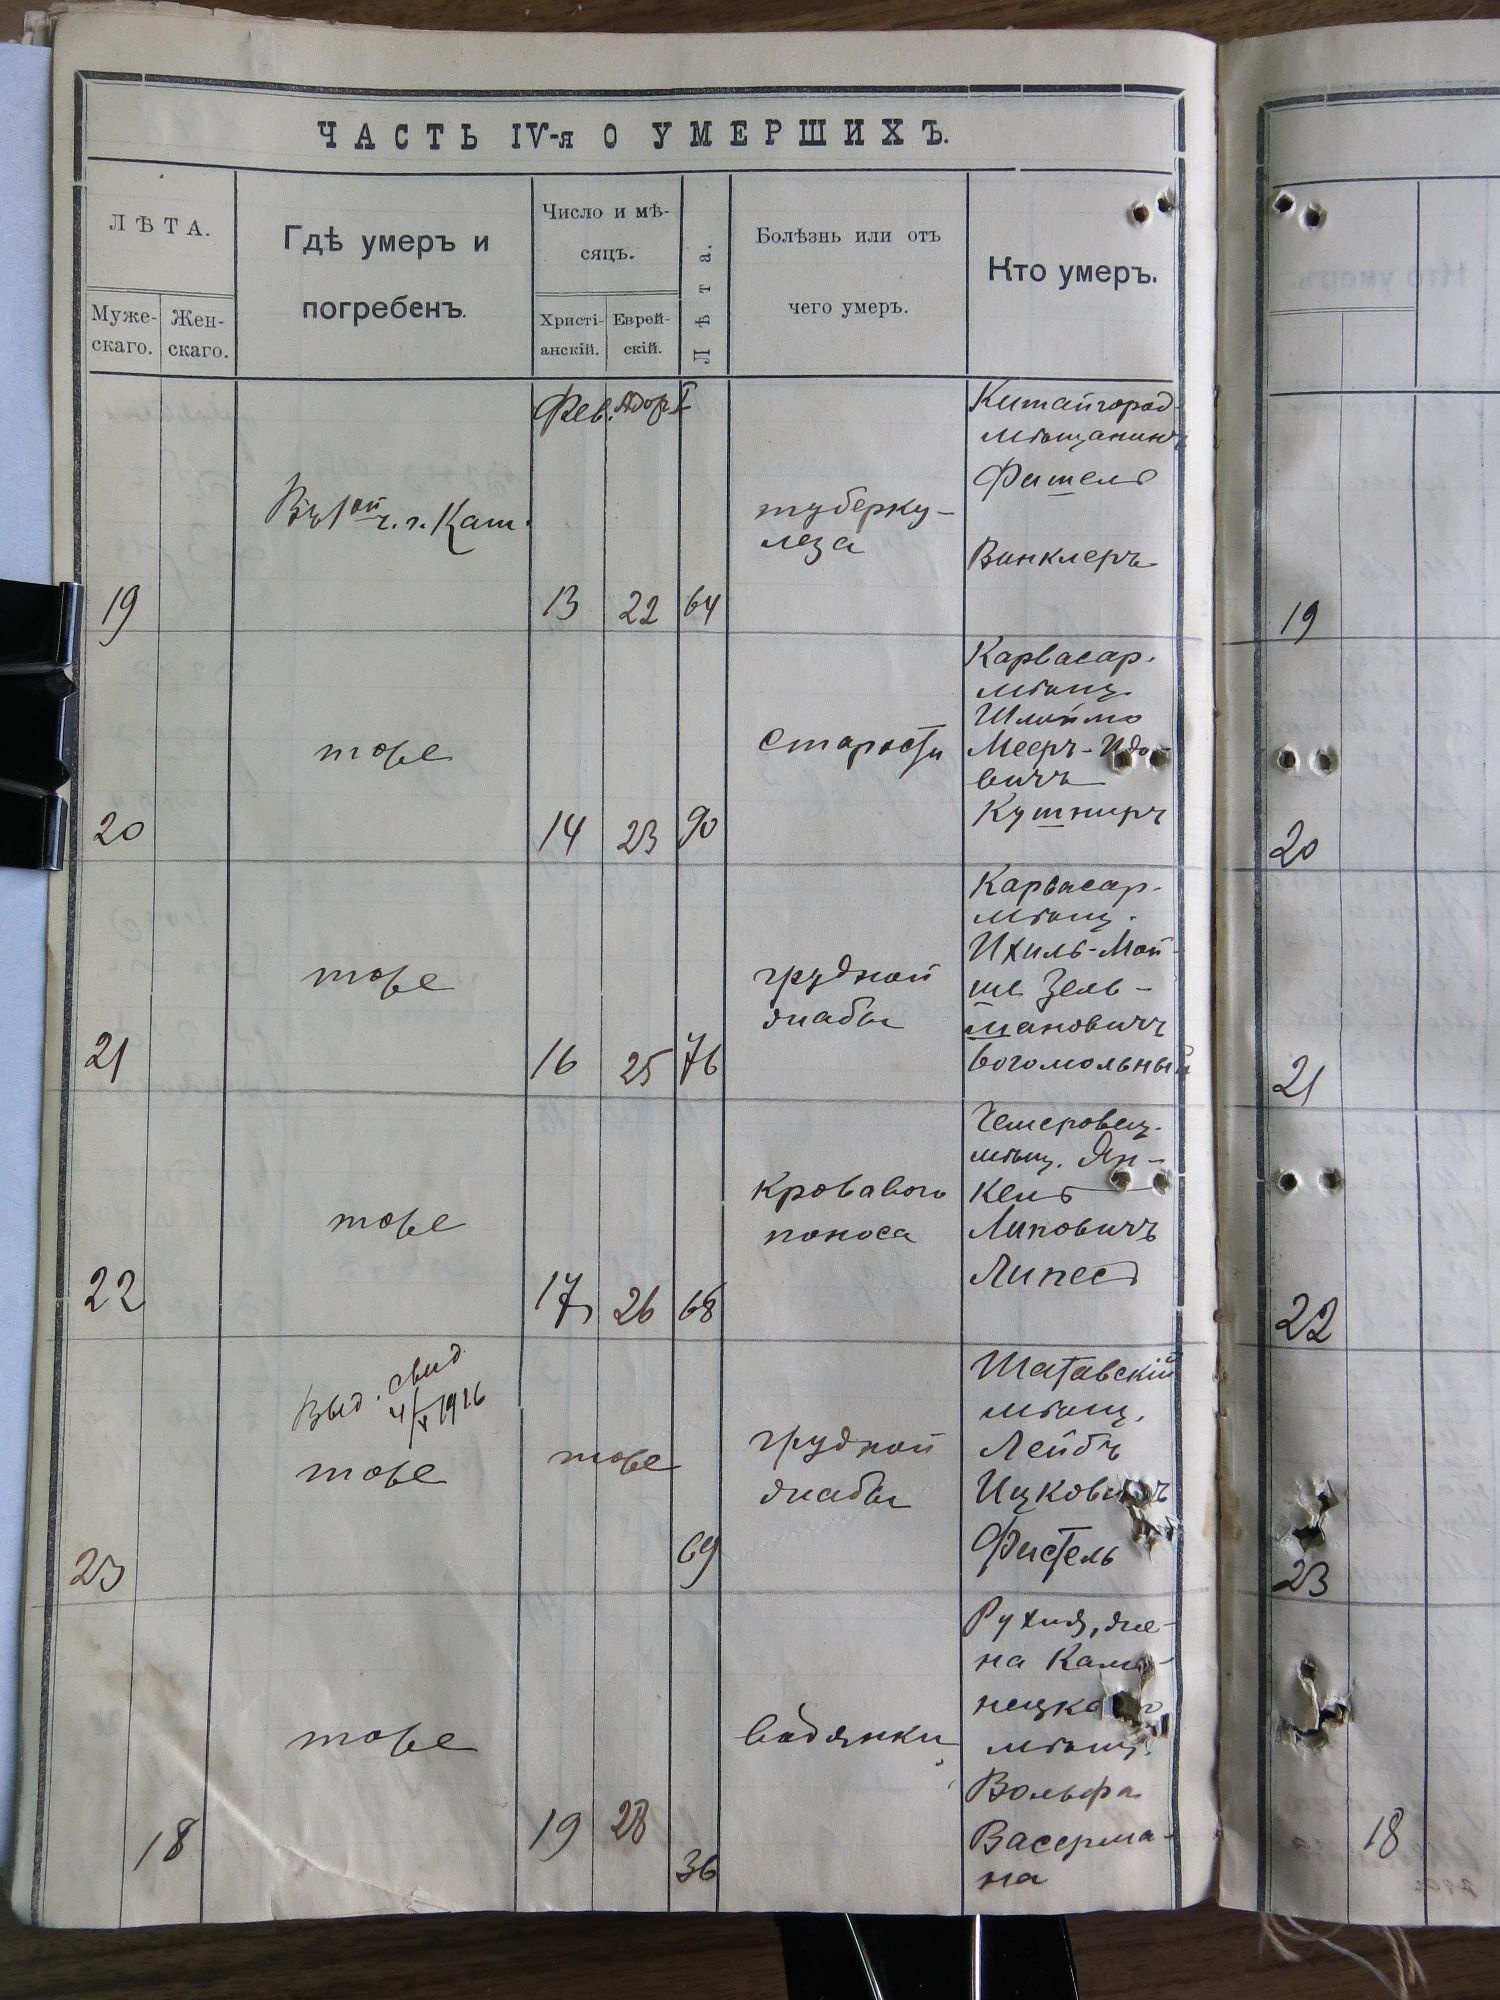 ЧАСТЬ IV-я О УМЕРШИХЪ.
ЛѢТА.
Муже-
скаго.
Жен-
скаго.
Гдѣ умеръ и
погребенъ.
Число и мѣ-
сяцъ.
Христі-
анскій.
Еврей-
скій.
Лѣта.
Болѣзнь или отъ
чего умеръ.
Кто умеръ.
Фев. Адоръ I
19
Въ 1ой ч. г. Кам.
13
22
64
туберку-
леза
Китайгород.
мѣщанинъ
Фишель
Винклеръ
19
20
тоже
14
23
90
старости
Карвасар.
мѣщ.
Шлиомо
Мееръ-
вичъ
Кушниръ
20
21
тоже
16
25
76
грудной
жабы
Карвасар.
мѣщ.
Ихиль-Мой-
ше Зель-
мановичъ
Богомольный
21
22
тоже
17
26
68
кроваваго
поноса
Чемеровец.
мѣщ. Ян-
кель
Липовичъ
Липесъ
22
Выд. свид
4/V 1916
23
тоже
тоже
69
грудной
жабы
Шатавскій
мѣщ.
Лейбъ
Ицковичъ
Фистель
23
18
тоже
19
28
36
водянки
Рухля, же-
на Каме-
нецкаго
мѣщ.
Вольфа
Васерма-
на
18